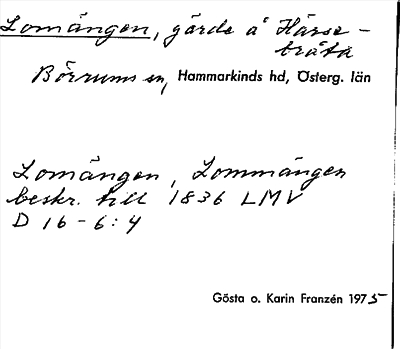 Lomängen, gärde å Härse-
bråta
Börrums sn, Hammarkinds hd, Österg. län
Lomängen, Lommängen
beskr. till 1836 LMV
D 16-6:4
Gösta o. Karin Franzén 1975